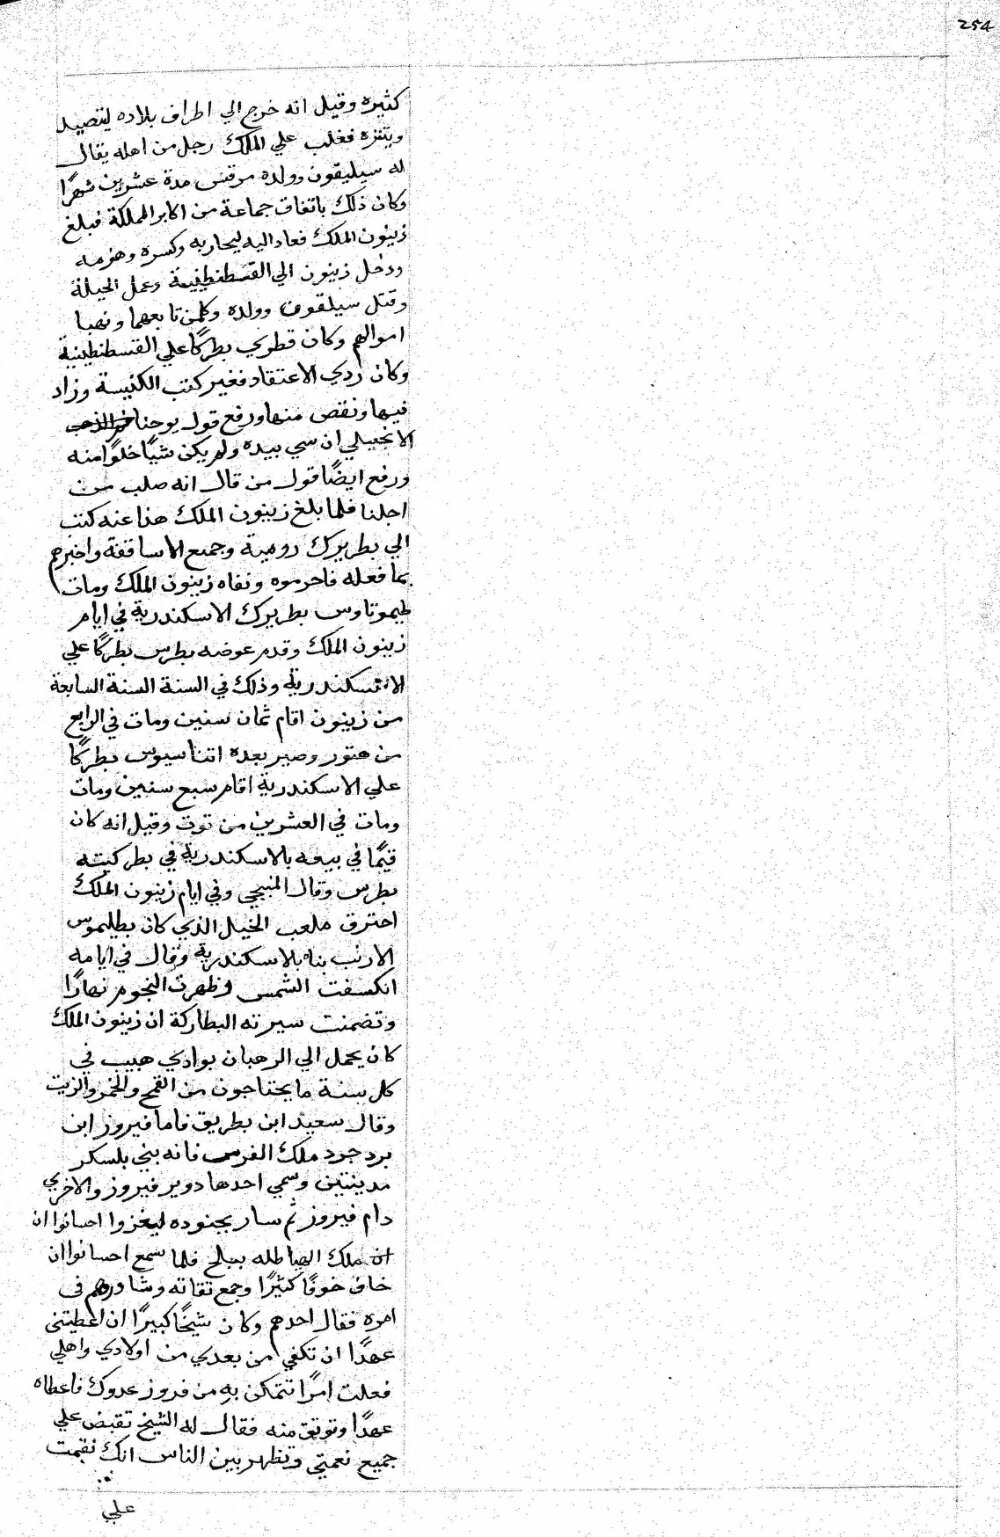 254
كثيره وقيل انه خرج الي اطراف بلاده ليتصيد
ويتنزه فغلب علي الملك رجل من اهله يقال
له سيليقون وولده مرقس مدة عشرين شهرًا
وكان ذلك باتفاق جماعة من اكابر المملكة فبلغ
زينون الملك فعاد اليه ليحاربه وكسره وهزمه
ودخل زينون الي القسطنطينية وعمل الحيلة
وقتل سيلقون وولده وكلمن تابعهما ونهبا
اموالهم وكان قطري بطركًا علي القسطنطينية
وكان ردي الاعتقاد فغير كتب الكنيسة وزاد
فيها ونقص منها ورفع قول يوحنا
الانجيلي ان سي بيده ولم يكن شيًا خلوًا منه
ورفع ايضًا قول من قال انه صلب من
اجلنا فلما بلغ زينون الملك هذا عنه كتب
الي بطريرك رومية وجميع الاساقفة واخبرهم
بما فعله فاحرموه ونفاه زينون الملك ومات
طيموتاوس بطريرك الاسكندرية في ايام
زينون الملك وقدم عوضه بطرس بطركًا علي
الاسكندرية وذلك في السنة السنة السابعة
من زينون اقام ثمان سنين ومات في الرابع
من هتور وصير بعده اتناسيوس بطركًا
علي الاسكندرية اقام سبع سنين ومات
ومات في العشرين من توت وقيل انه كان
قيمًا في بيعه بالاسكندرية في بطركيته
بطرس وقال المنبجي وفي ايام زينون الملك
احترق ملعب الخيل الذي كان بطليموس
الارنب بناه بالاسكندرية وقال في ايامه
انكسفت الشمس وظهرت النجوم نهارًا
وتضمنت سيرته البطاركة ان زينون الملك
كان يحمل الي الرهبان بوادي هبيب في
كل سنة ما يحتاجون من القمح والخمر والزيت
وقال سعيد ابن بطريق فاما فيروز ابن
يردجرد ملك الفرس فانه بني بلسكر
مدينتين وسمي احدها دوير فيروز والاخري
دام فيروز ثم سار بجنوده ليغزوا احسانوا ان
ان ملك الهياطله ببلح فلما سمع احسانوا ان
خاف خوفًا كثيرًا وجمع ثقاته وشاورهم في
امره فقال احدهم وكان شيخًا كبيرًا ان اعطيتني
عهدًا ان تكفي من بعدي من اولادي واهلي
فعلت امرًا تتمكن به من فروز عدوك فاعطاه
عهدًا وتوثق منه فقال له الشيخ تقبض علي
جميع نعمتي وتظهر بين الناس انك نقمت
علي